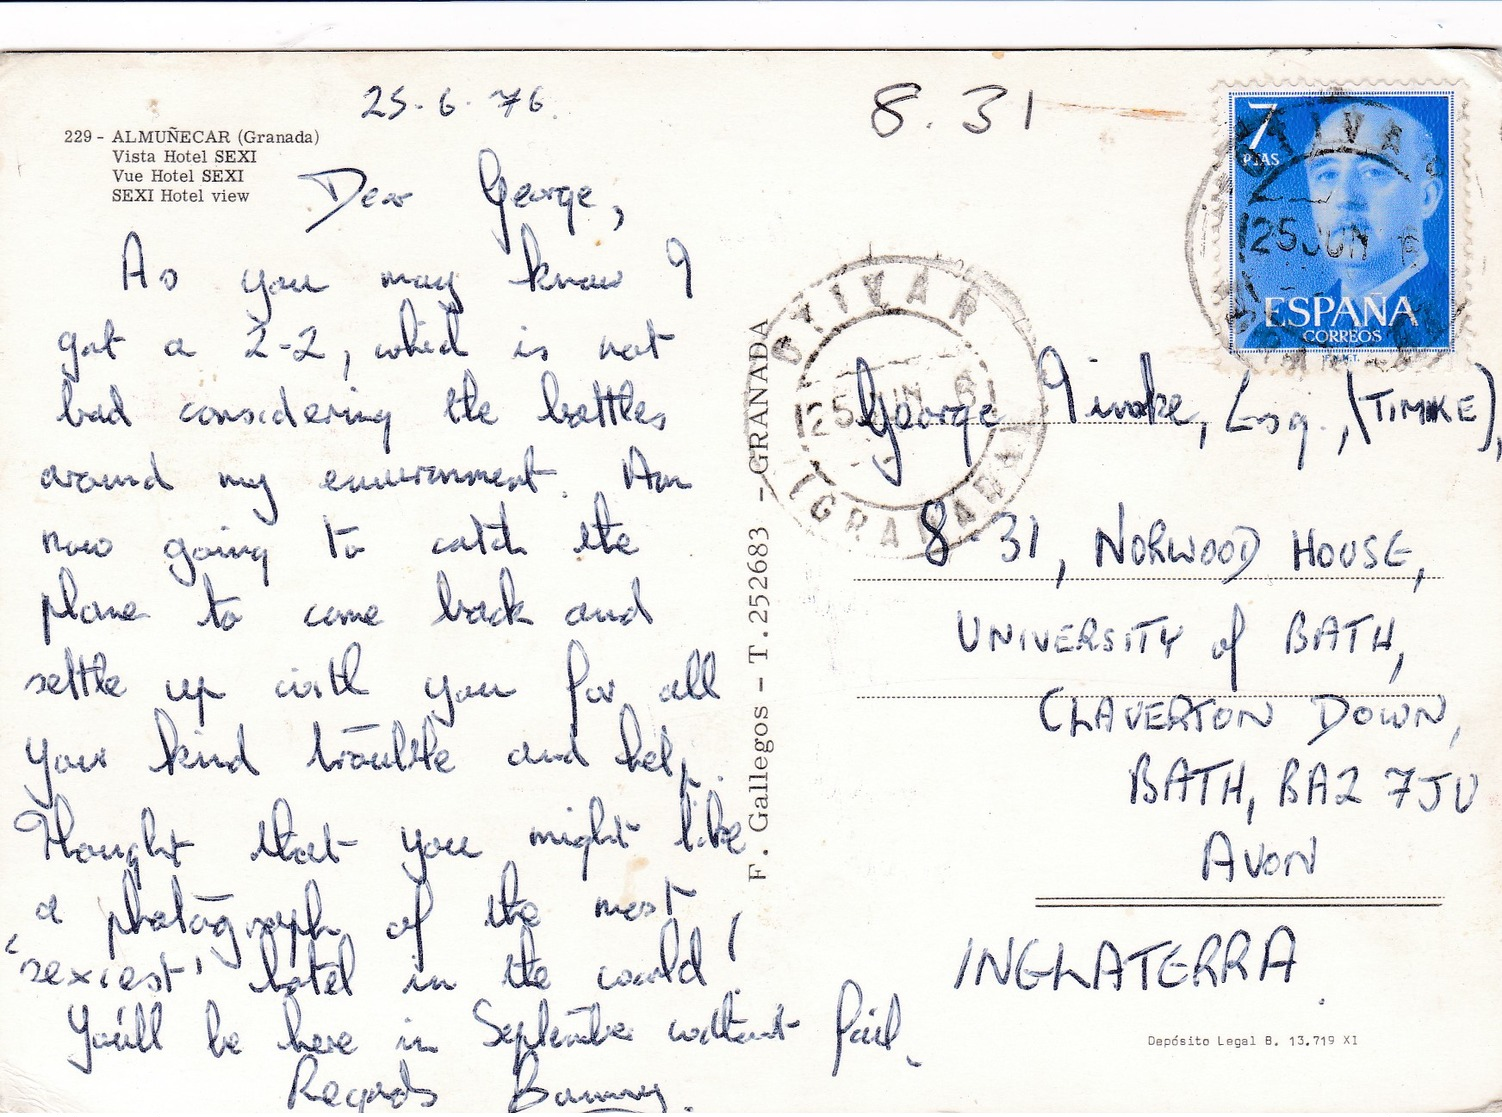 25-6-76.
8.31
229 - ALMUÑECAR (Granada)
Vista Hotel SEXI
Vue Hotel SEXI
SEXI Hotel view
Dear George,
As you may know I
got a 2-2, which is not
bad considering the bottles
around my environment. Am
now going to catch the
plane to come back and
settle up with you for all
your kind trouble and help.
Thought that you might like
a photograph of the most
'sexiest' hotel in the world!
You'll be here in September without fail.
Regards
F. Gallegos - T. 252683 - GRANADA
7
PTAS
ESPAÑA
CORREOS
25 JUN
ORJIVAR
25 JUN 6
(GRANADA)
George Timke, Esq., (TIMKE),
8-31, NORWOOD HOUSE,
UNIVERSITY of BATH,
CLAVERTON DOWN,
BATH, BA2 7JU
AVON
INGLATERRA.
Depósito Legal B. 13.719 XI